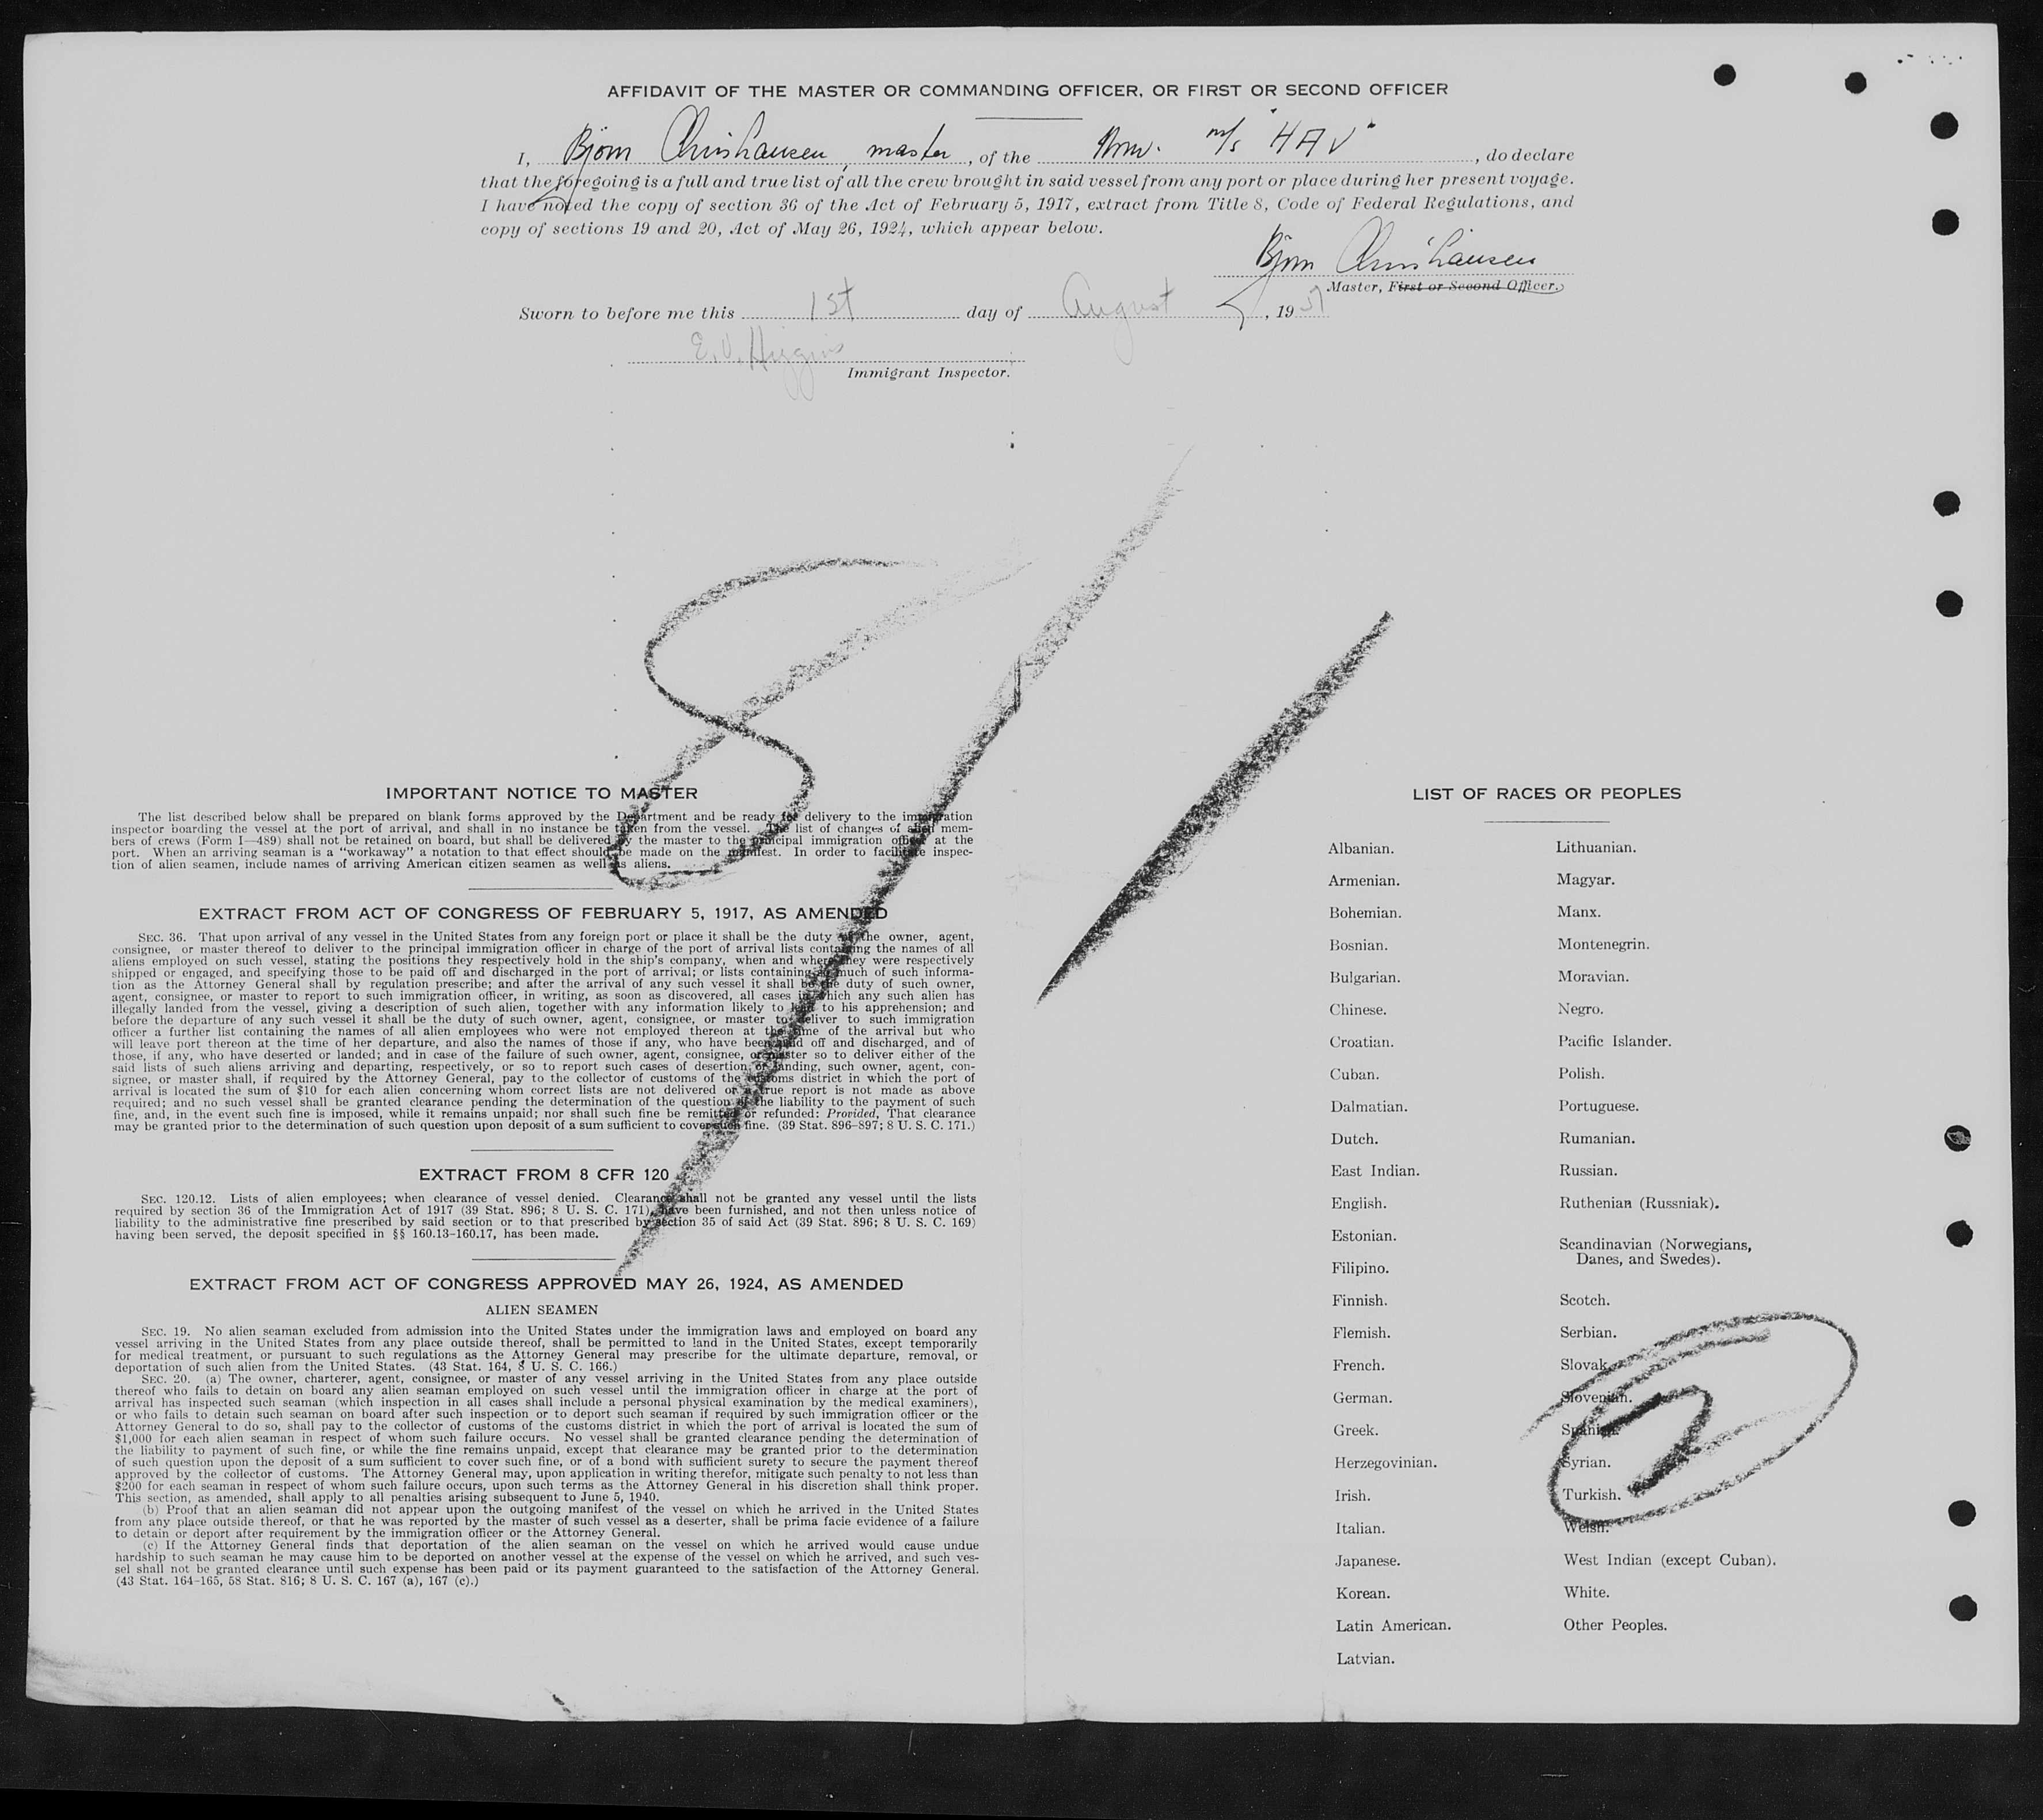 AFFIDAVIT OF THE MASTER OR COMMANDING OFFICER, OR FIRST OR SECOND OFFICER
I, Bjorn Christiansen, master, of the Nrw. m/s "HAV", do declare
that the foregoing is a full and true list of all the crew brought in said vessel from any port or place during her present voyage.
I have noted the copy of section 36 of the Act of February 5, 1917, extract from Title 8, Code of Federal Regulations, and
copy of sections 19 and 20, Act of May 26, 1924, which appear below.
Bjorn Christiansen
Master, First or Second Officer.
Sworn to before me this 1st day of August, 1951
E.V. Higgins
Immigrant Inspector.
8/1/
IMPORTANT NOTICE TO MASTER
The list described below shall be prepared on blank forms approved by the Department and be ready for delivery to the immigration
inspector boarding the vessel at the port of arrival, and shall in no instance be taken from the vessel. The list of changes of alien mem-
bers of crews (Form I—489) shall not be retained on board, but shall be delivered by the master to the principal immigration officer at the
port. When an arriving seaman is a "workaway" a notation to that effect should be made on the manifest. In order to facilitate inspec-
tion of alien seamen, include names of arriving American citizen seamen as well as aliens.
EXTRACT FROM ACT OF CONGRESS OF FEBRUARY 5, 1917, AS AMENDED
SEC. 36. That upon arrival of any vessel in the United States from any foreign port or place it shall be the duty of the owner, agent,
consignee, or master thereof to deliver to the principal immigration officer in charge of the port of arrival lists containing the names of all
aliens employed on such vessel, stating the positions they respectively hold in the ship's company, when and where they were respectively
shipped or engaged, and specifying those to be paid off and discharged in the port of arrival; or lists containing so much of such informa-
tion as the Attorney General shall by regulation prescribe; and after the arrival of any such vessel it shall be the duty of such owner,
agent, consignee, or master to report to such immigration officer, in writing, as soon as discovered, all cases in which any such alien has
illegally landed from the vessel, giving a description of such alien, together with any information likely to lead to his apprehension; and
before the departure of any such vessel it shall be the duty of such owner, agent, consignee, or master to deliver to such immigration
officer a further list containing the names of all alien employees who were not employed thereon at the time of the arrival but who
will leave port thereon at the time of her departure, and also the names of those if any, who have been paid off and discharged, and of
those, if any, who have deserted or landed; and in case of the failure of such owner, agent, consignee, or master so to deliver either of the
said lists of such aliens arriving and departing, respectively, or so to report such cases of desertion or landing, such owner, agent, con-
signee, or master shall, if required by the Attorney General, pay to the collector of customs of the customs district in which the port of
arrival is located the sum of $10 for each alien concerning whom correct lists are not delivered or a true report is not made as above
required; and no such vessel shall be granted clearance pending the determination of the question of the liability to the payment of such
fine, and, in the event such fine is imposed, while it remains unpaid; nor shall such fine be remitted or refunded: Provided, That clearance
may be granted prior to the determination of such question upon deposit of a sum sufficient to cover such fine. (39 Stat. 896–897; 8 U. S. C. 171.)
EXTRACT FROM 8 CFR 120
SEC. 120.12. Lists of alien employees; when clearance of vessel denied. Clearance shall not be granted any vessel until the lists
required by section 36 of the Immigration Act of 1917 (39 Stat. 896; 8 U. S. C. 171), have been furnished, and not then unless notice of
liability to the administrative fine prescribed by said section or to that prescribed by section 35 of said Act (39 Stat. 896; 8 U. S. C. 169)
having been served, the deposit specified in §§ 160.13–160.17, has been made.
EXTRACT FROM ACT OF CONGRESS APPROVED MAY 26, 1924, AS AMENDED
ALIEN SEAMEN
SEC. 19. No alien seaman excluded from admission into the United States under the immigration laws and employed on board any
vessel arriving in the United States from any place outside thereof, shall be permitted to land in the United States, except temporarily
for medical treatment, or pursuant to such regulations as the Attorney General may prescribe for the ultimate departure, removal, or
deportation of such alien from the United States. (43 Stat. 164, 8 U. S. C. 166.)
SEC. 20. (a) The owner, charterer, agent, consignee, or master of any vessel arriving in the United States from any place outside
thereof who fails to detain on board any alien seaman employed on such vessel until the immigration officer in charge at the port of
arrival has inspected such seaman (which inspection in all cases shall include a personal physical examination by the medical examiners),
or who fails to detain such seaman on board after such inspection or to deport such seaman if required by such immigration officer or the
Attorney General to do so, shall pay to the collector of customs of the customs district in which the port of arrival is located the sum of
$1,000 for each alien seaman in respect of whom such failure occurs. No vessel shall be granted clearance pending the determination of
the liability to payment of such fine, or while the fine remains unpaid, except that clearance may be granted prior to the determination
of such question upon the deposit of a sum sufficient to cover such fine, or of a bond with sufficient surety to secure the payment thereof
approved by the collector of customs. The Attorney General may, upon application in writing therefor, mitigate such penalty to not less than
$200 for each seaman in respect of whom such failure occurs, upon such terms as the Attorney General in his discretion shall think proper.
This section, as amended, shall apply to all penalties arising subsequent to June 5, 1940.
(b) Proof that an alien seaman did not appear upon the outgoing manifest of the vessel on which he arrived in the United States
from any place outside thereof, or that he was reported by the master of such vessel as a deserter, shall be prima facie evidence of a failure
to detain or deport after requirement by the immigration officer or the Attorney General.
(c) If the Attorney General finds that deportation of the alien seaman on the vessel on which he arrived would cause undue
hardship to such seaman he may cause him to be deported on another vessel at the expense of the vessel on which he arrived, and such ves-
sel shall not be granted clearance until such expense has been paid or its payment guaranteed to the satisfaction of the Attorney General.
(43 Stat. 164–165, 58 Stat. 816; 8 U. S. C. 167 (a), 167 (c).)
LIST OF RACES OR PEOPLES
Albanian.
Armenian.
Bohemian.
Bosnian.
Bulgarian.
Chinese.
Croatian.
Cuban.
Dalmatian.
Dutch.
East Indian.
English.
Estonian.
Filipino.
Finnish.
Flemish.
French.
German.
Greek.
Herzegovinian.
Irish.
Italian.
Japanese.
Korean.
Latin American.
Latvian.
Lithuanian.
Magyar.
Manx.
Montenegrin.
Moravian.
Negro.
Pacific Islander.
Polish.
Portuguese.
Rumanian.
Russian.
Ruthenian (Russniak).
Scandinavian (Norwegians,
Danes, and Swedes).
Scotch.
Serbian.
Slovak.
Slovenian.
Spanish.
Syrian.
Turkish.
Welsh.
West Indian (except Cuban).
White.
Other Peoples.
2